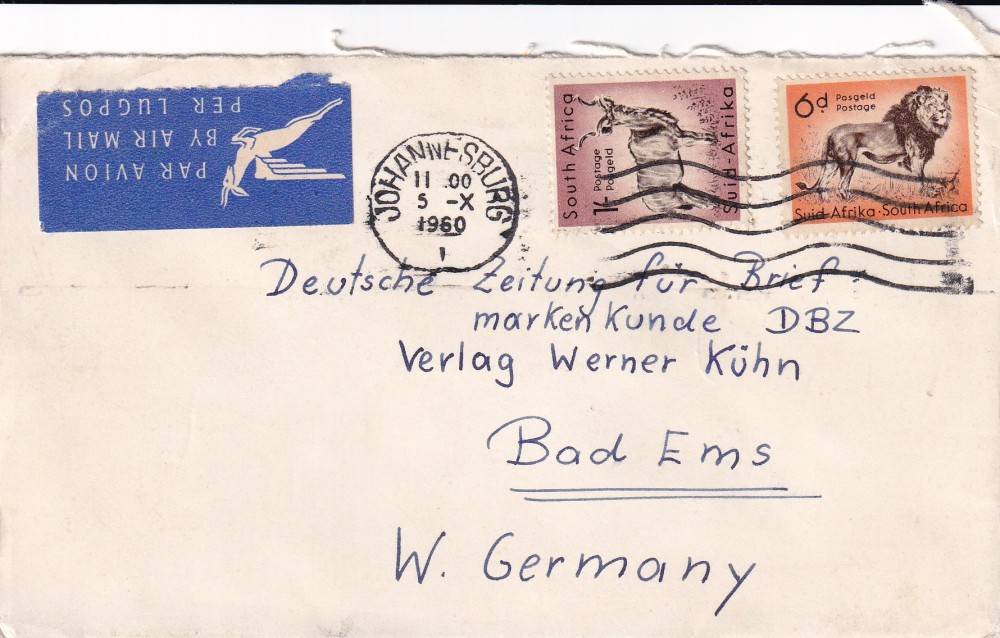 PER LUGPOS
BY AIR MAIL
PAR AVION
JOHANNESBURG
11 .00
5 -X
1960
South Africa
1/- Postage
Posgeld
Suid-Afrika
6d Posgeld
Postage
Suid-Afrika·South Africa
Deutsche Zeitung für Brief-
markenkunde DBZ
Verlag Werner Kühn
Bad Ems
W. Germany